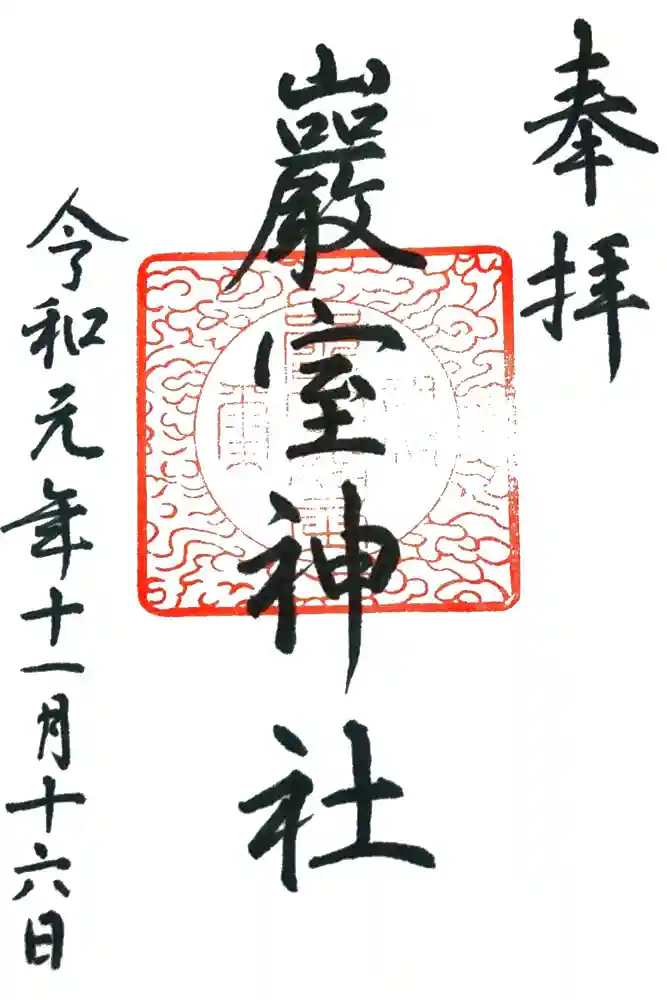 奉拝
巖室神社
令和元年十一月十六日